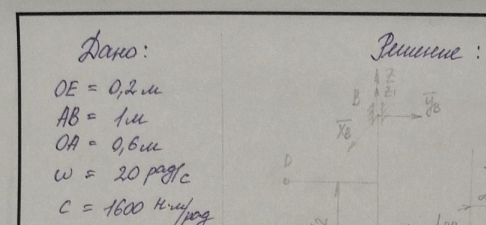 Дано:
Решение:
OE = 0,2 м
AB = 1 м
OA = 0,6 м
ω = 20 рад/с
c = 1600 Н·м/рад
Z
Z1
B
YB
XB
D